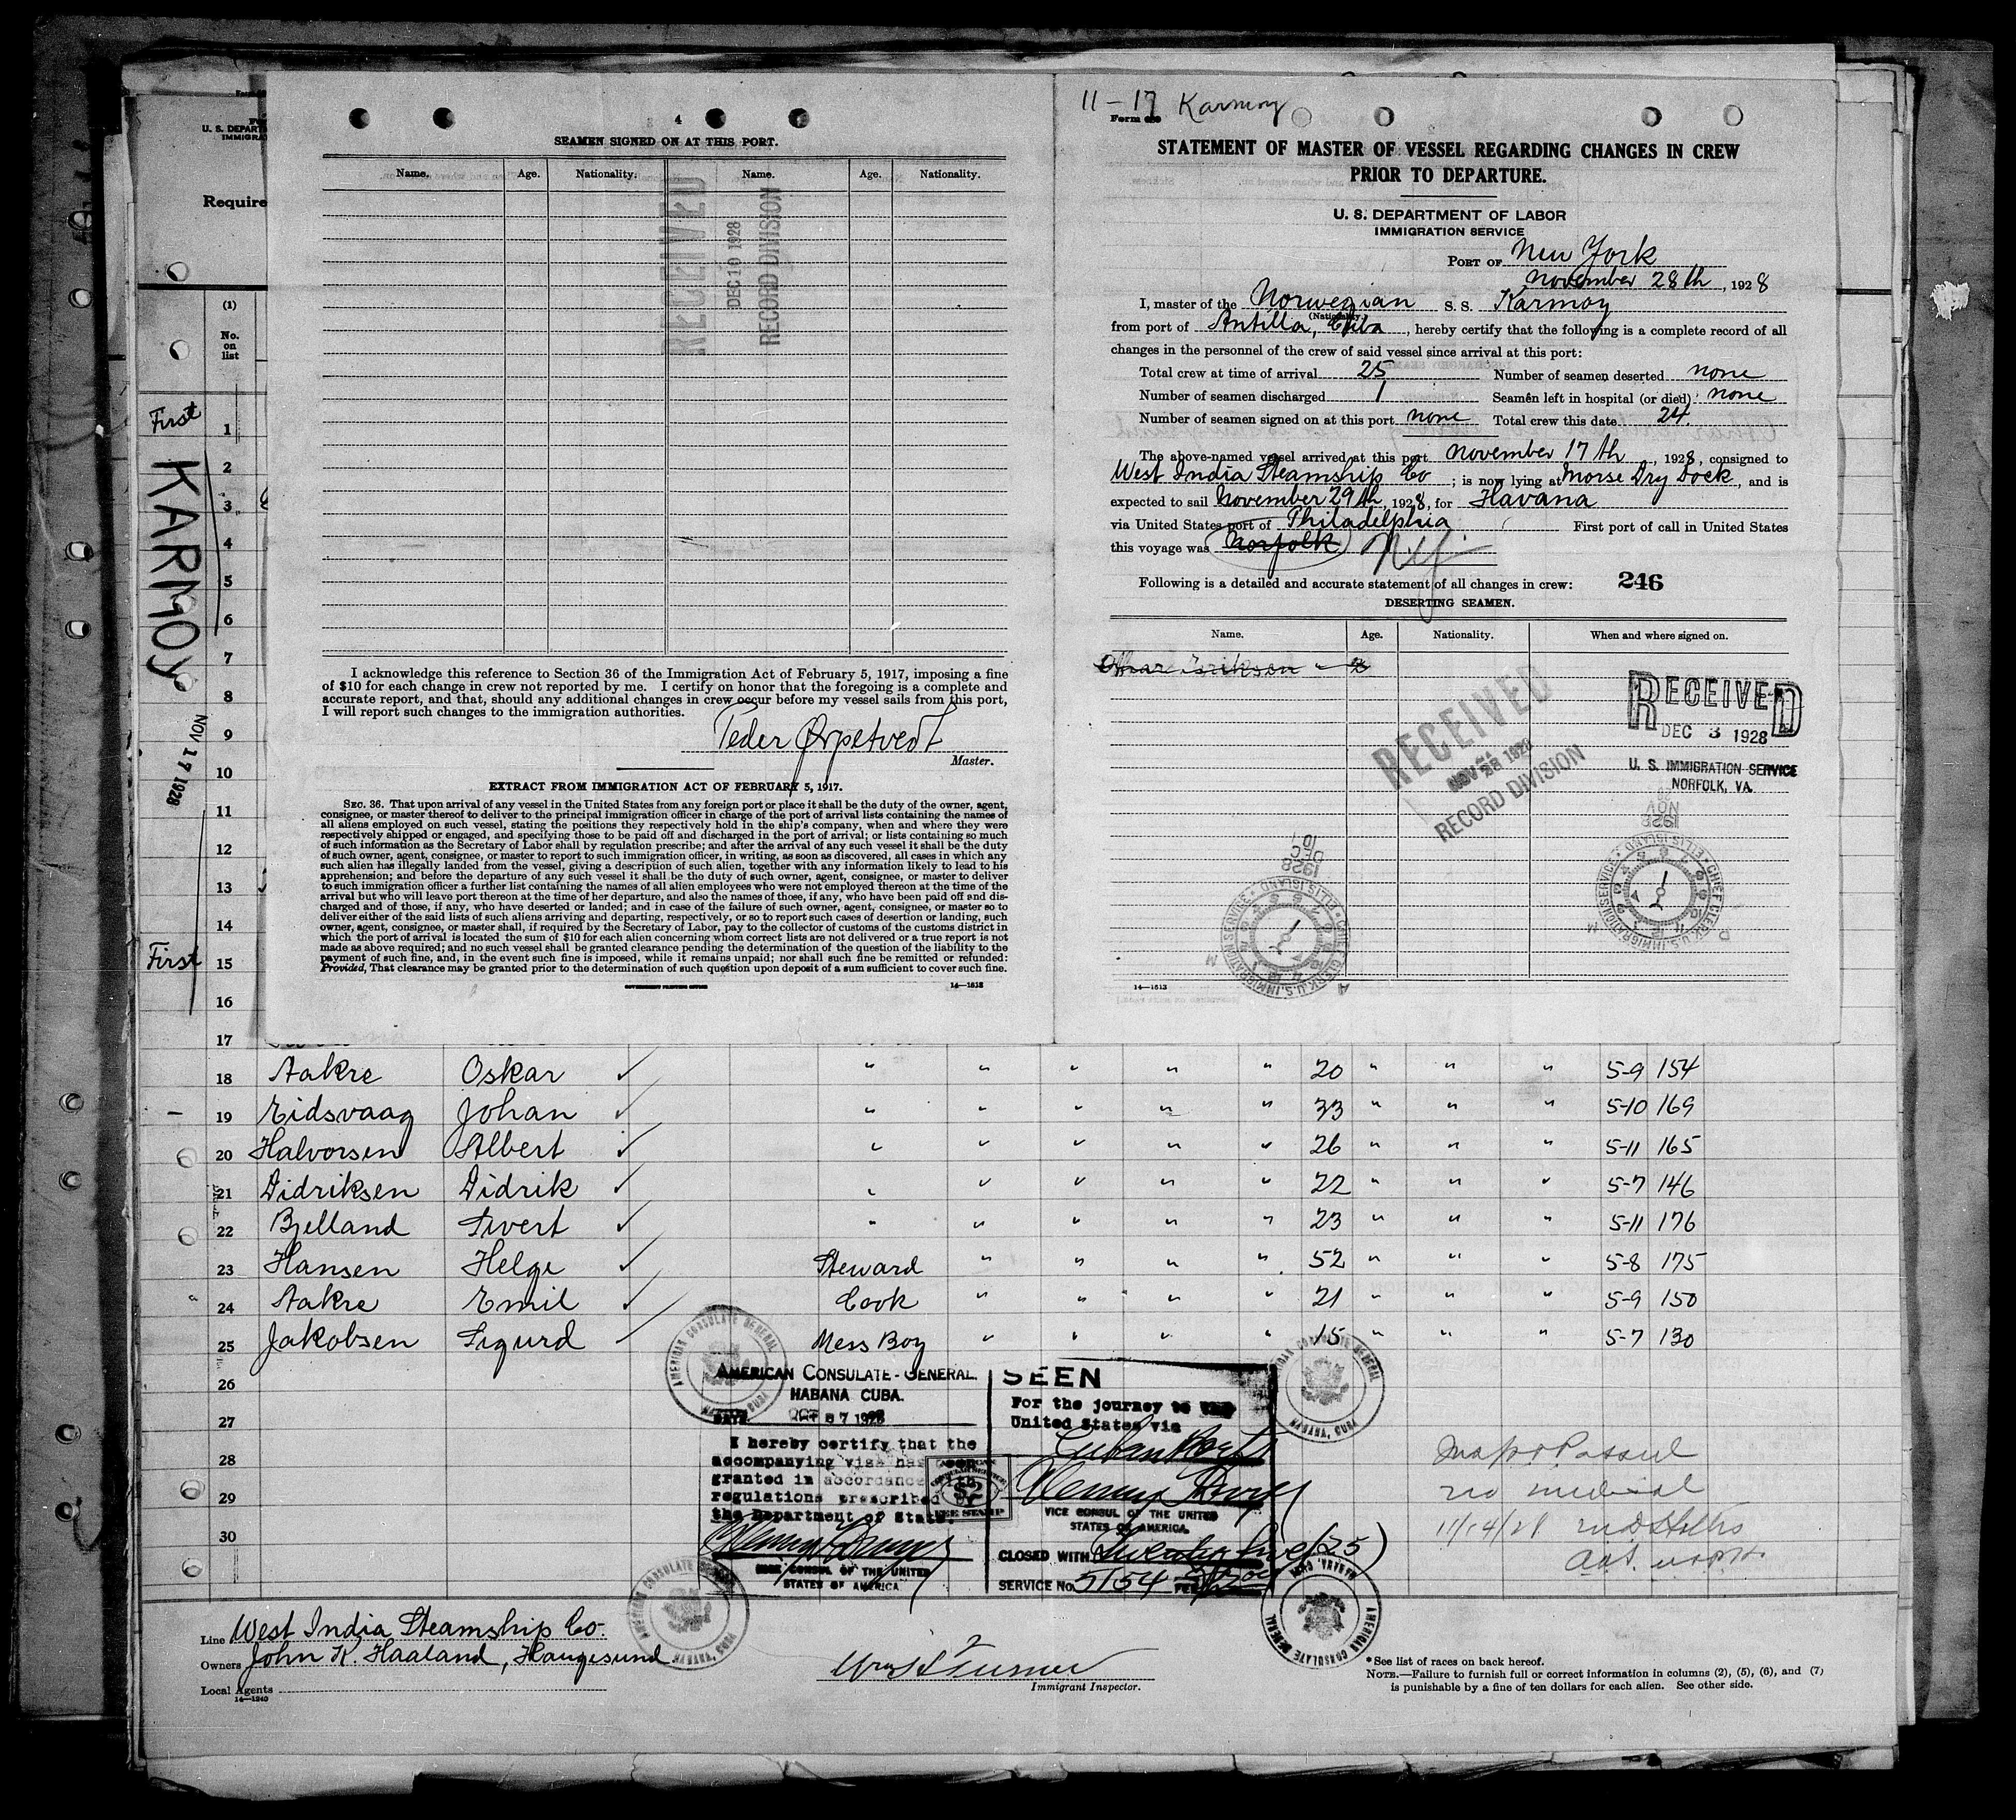 4
SEAMEN SIGNED ON AT THIS PORT.
Name. Age. Nationality. Name. Age. Nationality.
RECEIVED
DEC 10 1928
RECORD DIVISION
I acknowledge this reference to Section 36 of the Immigration Act of February 5, 1917, imposing a fine
of $10 for each change in crew not reported by me. I certify on honor that the foregoing is a complete and
accurate report, and that, should any additional changes in crew occur before my vessel sails from this port,
I will report such changes to the immigration authorities.
Peder
Master.
EXTRACT FROM IMMIGRATION ACT OF FEBRUARY 5, 1917.
SEC. 36. That upon arrival of any vessel in the United States from any foreign port or place it shall be the duty of the owner, agent,
consignee, or master thereof to deliver to the principal immigration officer in charge of the port of arrival lists containing the names of
all aliens employed on such vessel, stating the positions they respectively hold in the ship's company, when and where they were
respectively shipped or engaged, and specifying those to be paid off and discharged in the port of arrival; or lists containing so much
of such information as the Secretary of Labor shall by regulation prescribe; and after the arrival of any such vessel it shall be the duty
of such owner, agent, consignee, or master to report to such immigration officer, in writing, as soon as discovered, all cases in which any
such alien has illegally landed from the vessel, giving a description of such alien, together with any information likely to lead to his
apprehension; and before the departure of any such vessel it shall be the duty of such owner, agent, consignee, or master to deliver
to such immigration officer a further list containing the names of all alien employees who were not employed thereon at the time of the
arrival but who will leave port thereon at the time of her departure, and also the names of those, if any, who have been paid off and dis-
charged and of those, if any, who have deserted or landed; and in case of the failure of such owner, agent, consignee, or master so to
deliver either of the said lists of such aliens arriving and departing, respectively, or so to report such cases of desertion or landing, such
owner, agent, consignee, or master shall, if required by the Secretary of Labor, pay to the collector of customs of the customs district in
which the port of arrival is located the sum of $10 for each alien concerning whom correct lists are not delivered or a true report is not
made as above required; and no such vessel shall be granted clearance pending the determination of the question of the liability to the
payment of such fine, and, in the event such fine is imposed, while it remains unpaid; nor shall such fine be remitted or refunded:
Provided, That clearance may be granted prior to the determination of such question upon deposit of a sum sufficient to cover such fine.
GOVERNMENT PRINTING OFFICE
14—1613
11-17 Karmoy
Form
STATEMENT OF MASTER OF VESSEL REGARDING CHANGES IN CREW
PRIOR TO DEPARTURE.
U. S. DEPARTMENT OF LABOR
IMMIGRATION SERVICE
PORT OF New York
November 28th, 1928
I, master of the Norwegian S. S. Karmoy
(Nationality)
from port of Antilla, Cuba, hereby certify that the following is a complete record of all
changes in the personnel of the crew of said vessel since arrival at this port:
Total crew at time of arrival 25 Number of seamen deserted none
Number of seamen discharged 1 Seamen left in hospital (or died) none
Number of seamen signed on at this port none Total crew this date 24.
The above-named vessel arrived at this port November 17th, 1928, consigned to
West India Steamship Co; is now lying at Morse Dry Dock, and is
expected to sail November 29th, 1928, for Havana
via United States port of Philadelphia First port of call in United States
this voyage was Norfolk N.Y.
Following is a detailed and accurate statement of all changes in crew: 246
DESERTING SEAMEN.
Name. Age. Nationality. When and where signed on.
RECEIVED
NOV 28 1928
RECORD DIVISION
RECEIVED
DEC 3 1928
U. S. IMMIGRATION SERVICE
NORFOLK, VA.
DEC
1928
CHIEF CLERK U.S. IMMIGRATION SERVICE
ELLIS ISLAND
NOV
1928
CHIEF CLERK U.S. IMMIGRATION SERVICE
ELLIS ISLAND
14—1613
U. S. DEPART
IMMIGRA
Require
(1)
No.
on
list
First
KARMOY
NOV 17 1928
First
1
2
3
4
5
6
7
8
9
10
11
12
13
14
15
16
17
18 Aakre Oskar ✓ " " " " " 20 " " " 5-9 154
19 Eidsvaag Johan ✓ " " " " " 33 " " " 5-10 169
20 Halvorsen Albert ✓ " " " " " 26 " " " 5-11 165
21 Didriksen Didrik ✓ " " " " " 22 " " " 5-7 146
22 Bjelland Sivert ✓ " " " " " 23 " " " 5-11 176
23 Hansen Helge ✓ Steward " " " " 52 " " " 5-8 175
24 Aakre Emil ✓ Cook " " " " 21 " " " 5-9 150
25 Jakobsen Sigurd ✓ Mess Boy " " " " 15 " " " 5-7 130
26
27
28
29
30
AMERICAN CONSULATE-GENERAL.
HABANA CUBA.
DATE
I hereby certify that the
accompanying visa has been
granted in accordance with
regulations prescribed by
the Department of State.
VICE CONSUL OF THE UNITED
STATES OF AMERICA
$2
FEE STAMP
SEEN
For the journey to the
United States via
Cuban Ports
VICE CONSUL OF THE UNITED
STATES OF AMERICA.
CLOSED WITH Twenty five (25)
SERVICE No. 5154 FEE
AMERICAN CONSULATE GENERAL
HABANA, CUBA
Passed
no medical
11/14/28
Line West India Steamship Co.
Owners John K. Haaland, Haugesund
Local Agents
14—1240
Immigrant Inspector.
*See list of races on back hereof.
NOTE.—Failure to furnish full or correct information in columns (2), (5), (6), and (7)
is punishable by a fine of ten dollars for each alien. See other side.